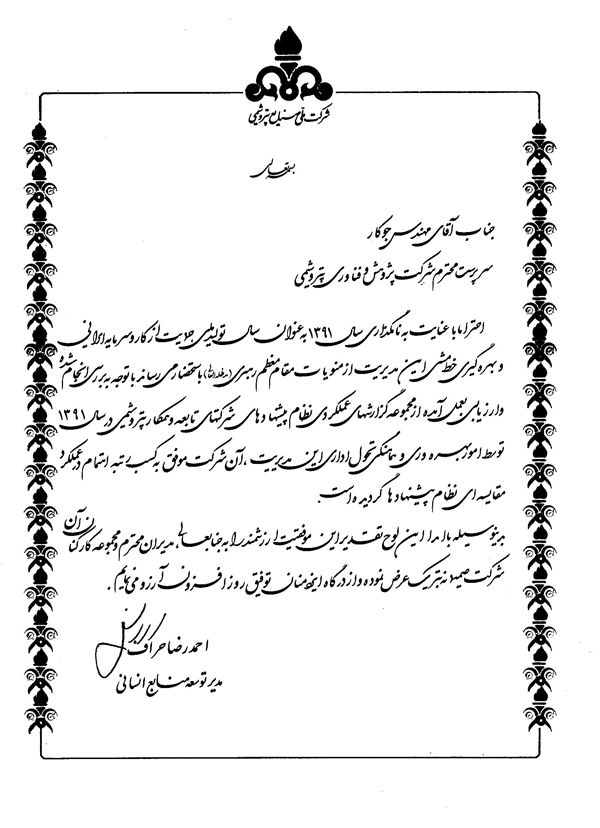 شرکت ملی صنایع پتروشیمی
بسمه تعالی
جناب آقای مهندس جوکار
سرپرست محترم شرکت پژوهش و فناوری پتروشیمی
احتراما با عنایت به نامگذاری سال ۱۳۹۱ به عنوان سال تولید ملی حمایت از کار و سرمایه ایرانی
و بهره گیری خط مشی این مدیریت از منویات مقام معظم رهبری (مدظله العالی) با استحضار می رساند با توجه به بررسی انجام شده
و ارزیابی بعمل آمده از مجموعه گزارشهای عملکردی نظام پیشنهادهای شرکتهای تابعه و همکار پتروشیمی در سال ۱۳۹۱
توسط امور بهره وری و هماهنگی تحول اداری این مدیریت ، آن شرکت موفق به کسب رتبه اهتمام در عملکرد
مقایسه ای نظام پیشنهادها گردیده است.
بدینوسیله با اهدا این لوح تقدیر این موفقیت ارزشمند را به جنابعالی، مدیران محترم و مجموعه کارکنان آن
شرکت صمیمانه تبریک عرض نموده و از درگاه ایزد منان توفیق روز افزون آرزو می نمایم .
احمدرضا حراف
مدیر توسعه منابع انسانی